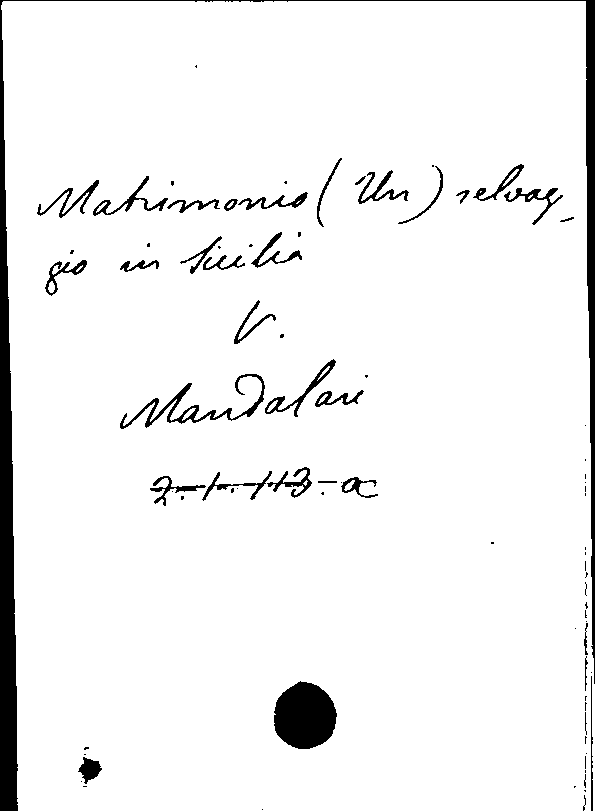 Matrimonio (Un) selvag-
gio in Sicilia
V.
Mandalari
2.-1.-113.-a